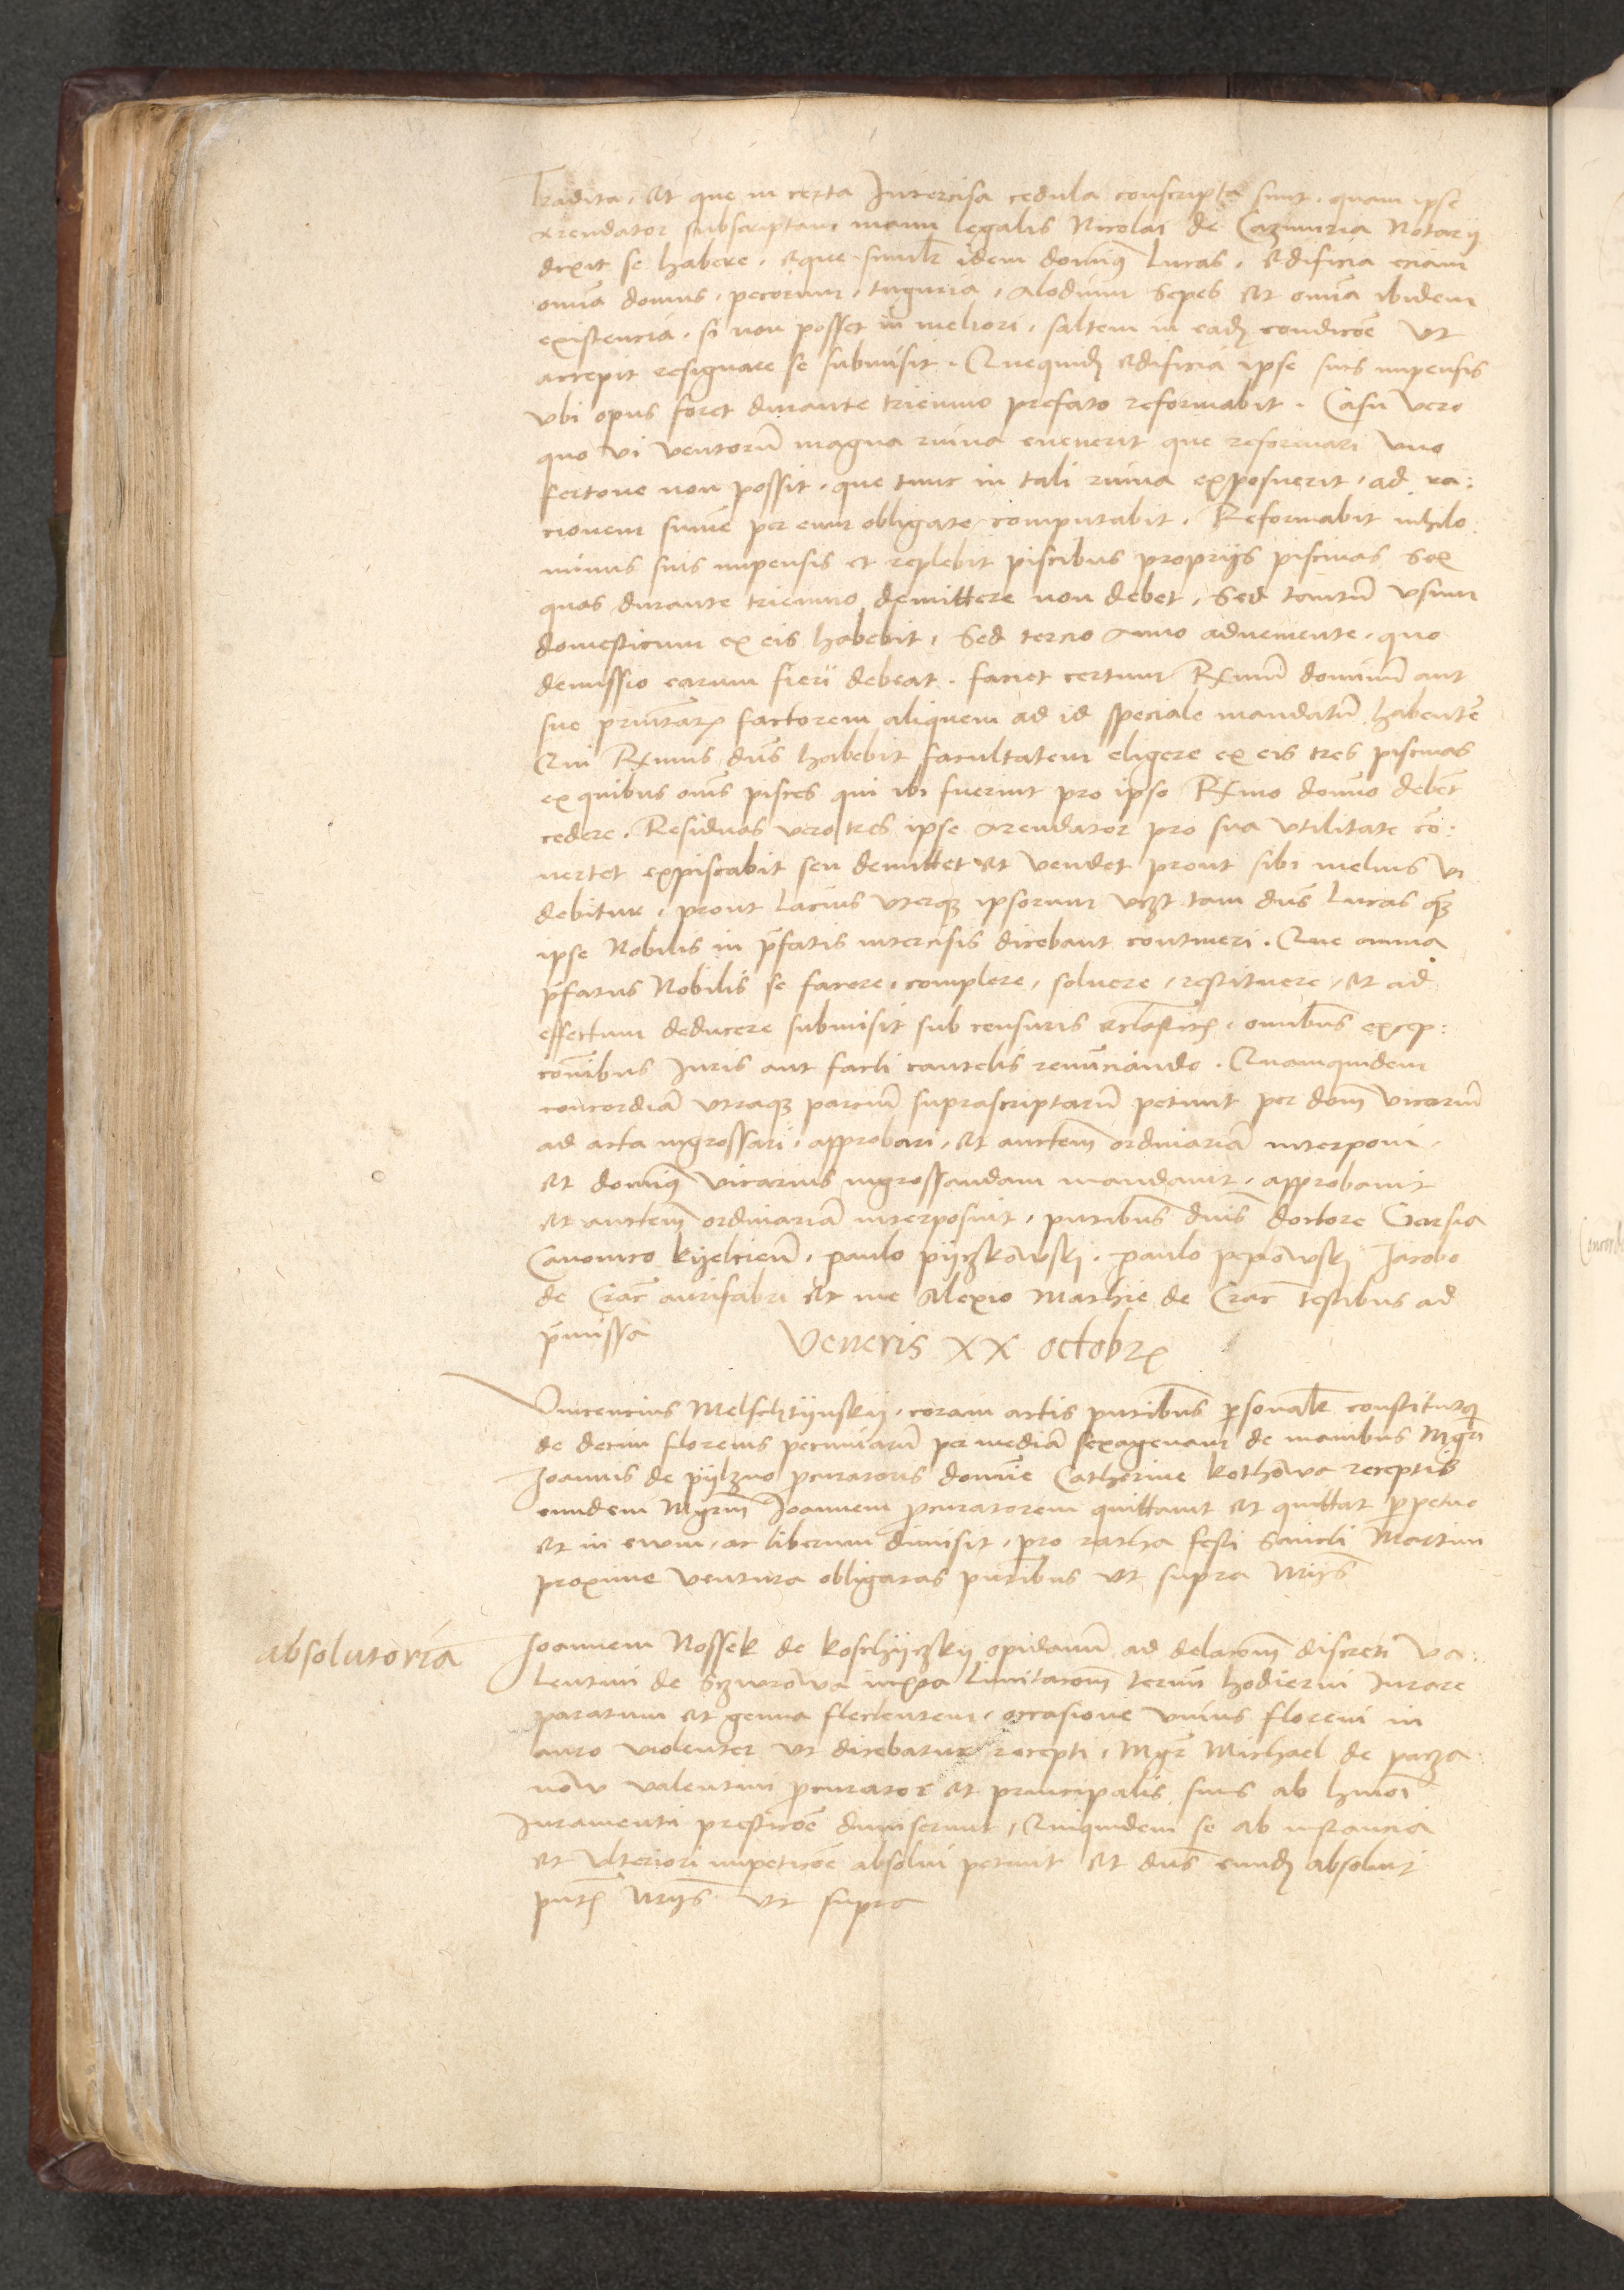 Tradita, et que in certa Intercisa cedula conscripta sunt, quam ipse
arendator subscriptam manu legalis Nicolai de Cazimiria Notarij
dixit se habere, eque simlr idem domĩus Lucas, edificia eciam
omĩa domus, pecorum, tuguria, Alodium Sepes et omĩa ibidem
existencia, si non posset in meliori, saltem in eadẽ condicõe ut
accepit resignare se submisit. Quequidẽ edificia ipse suis impensis
Vbi opus foret durante triennio prefato reformabit. Casu vero
quo vi ventorũ magna ruina euenerit que reformari vno
fertone non possit, que tunc in tali ruina exposuerit, ad ra:
cionem sum̃e per eum obligate computabit. Reformabit nihilo
minus suis impensis et replebit piscibus proprijs piscinas sex
quas durante triennio demittere non debet, Sed tantũ vsum
domesticum ex eis habebit, Sed tercio Anno adueniente, quo
demissio earum fieri debeat, faciet certum Rx̃mũ dominũ aut
sue factorem aliquem ad id speciale mandatũ habentẽ
Qui Rx̃mus dñs habebit facultatem eligere ex eis tres piscinas
ex quibus omẽs pisces qui ibi fuerint pro ipso Rx̃mo domĩo debẽt
cedere. Residuas vero tres ipse arendator pro sua vtilitate cõ:
uertet expiscabit seu demittet et vendet prout sibi melius vi
debitur, prout Lacius vterque ipsorum vczt tam dñs Lucas quã
ipse Nobilis in p̃fatis intercisis dicebant contineri. Que omnia
p̃fatus Nobilis se facere, complere, soluere, restituere, et ad
effectum deducere submisit sub censuris ecclasticis, omnibus excep:
cõnibus Iuris aut facti cautelis renũciando. Quamquidem
concordiã vtraque parciũ suprascriptarũ petiuit per dom̃ vicariũ
ad acta ingrossari, approbari, et auctẽm ordinariã interponi,
et domĩus vicarius ingrossandam mandauit, approbauit
et auctẽm ordinariã interposuit, pñtibus dñis doctore Garsia
Canonico kijelcieñ, paulo pijczkowskj, paulo peplowskj Jacobo
de Crac̃ aurifabri et me Alexio Mathie de Crac̃ testibus ad
p̃missa
Veneris XX octobris
Vincencius Melschtijnskij, coram actis pñtibus personalr constitutus
de decim florenis pecuniarũ per mediã sexagenam de manibus Mgri
Joannis de pijlzno procuratoris domĩe Catherine kothowa receptis
eundem Mgrm̃ Joannem procuratorem quittauit et quittat perpetuo
et in ewm, ac liberum dimisit, pro ratha festi Sancti Martini
proxime ventura obligatas pñtibus vt supra
absolutoria
Joannem Nossek de koschijczkij opidanũ ad delacõm discreti Va:
lentini de iuxta Limitacõm terminj hodierni Iurare
paratum et genua flectentem, occasione vnius floreni in
auro violenter vt dicebatur recepti, Mgr̃ Michael de pacza
now valentini procurator et principalis suus ab hmõi
Iuramenti prestacõe dimiserunt, Quiquidem se ab instancia
et vlteriori impeticõe absolui petiuit et dñs eundẽ absoluit
vt supra